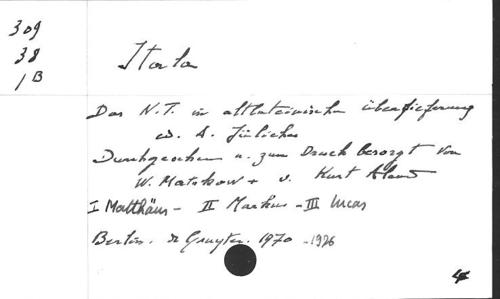 309
38
1 B
Itala
Das N.T. in altlateinischer überlieferung
ed. A. Jülicher
Durchgesehen u. zum Druck besorgt von
W. Matzkow + u. Kurt Aland
I Matthäus - II Markus - III Lucas
Berlin. de Gruyter. 1970 - 1976
4